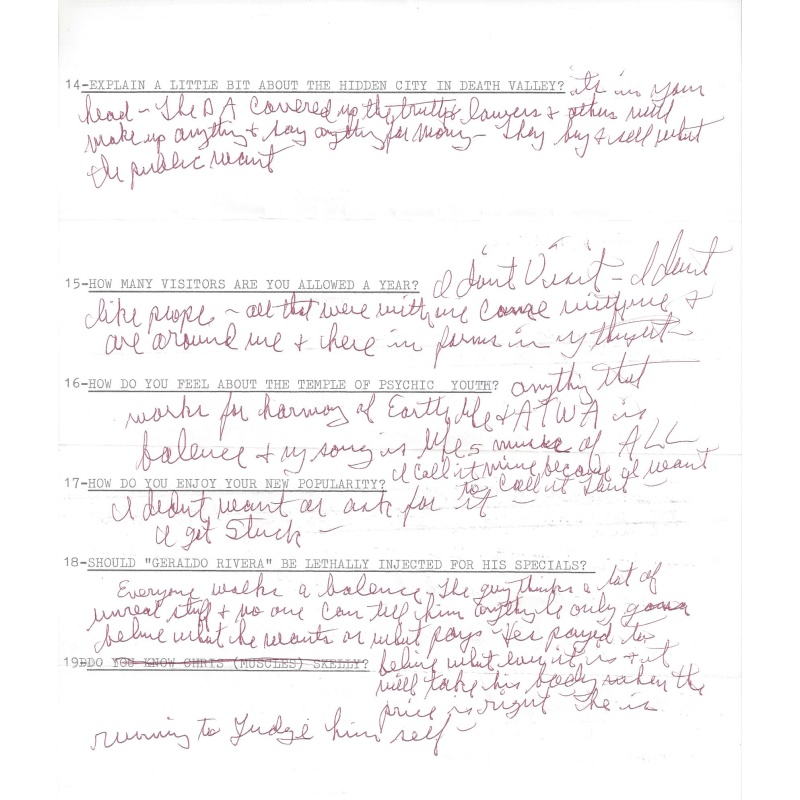 14-EXPLAIN A LITTLE BIT ABOUT THE HIDDEN CITY IN DEATH VALLEY? its in your
head - The DA covered up the truth & lawyers & others will
make up anything & say anything for money - They buy & sell what
the public want
15-HOW MANY VISITORS ARE YOU ALLOWED A YEAR? I dont Visit - I dont
like people - all that were with me come with me &
are around me & here in forms in my thought
16-HOW DO YOU FEEL ABOUT THE TEMPLE OF PSYCHIC YOUTH? anything that
works for harmony of Earth life & ATWA is
balence & my song is lifes of ALL
I call it mine because I want
17-HOW DO YOU ENJOY YOUR NEW POPULARITY? to call it that
I didnt want or ask for it -
I got Stuck -
18-SHOULD "GERALDO RIVERA" BE LETHALLY INJECTED FOR HIS SPECIALS?
Everyone walks a balence - The guy thinks a lot of
unreal stuff & no one can tell him anything he only gonna
belive what he wants or what pays - Hes payed to
19-DO YOU KNOW CHRIS (MUSCLES) SKELLY? belive what ever it is & it
will take his body when the
price is right - he is
running to Judge him self -